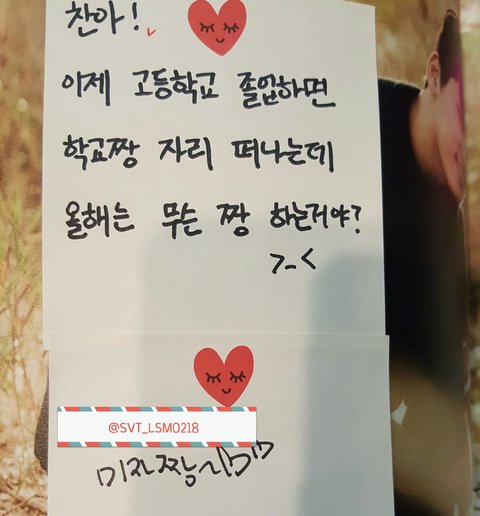 찬아!
이제 고등학교 졸업하면
학교짱 자리 떠나는데
올해는 무슨 짱 하는거야?
>_<
@SVT_LSM0218
미자짱~